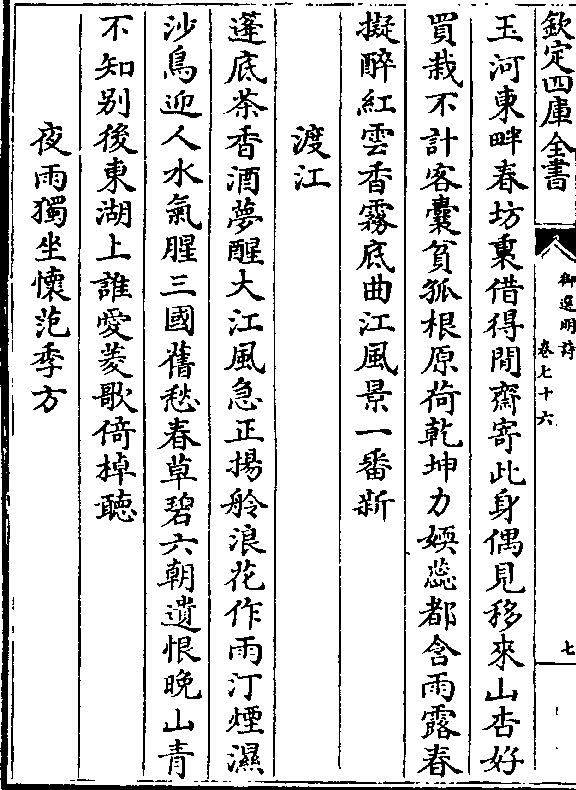 欽定四庫全書
御選明詩
卷七十六
七
玉河東畔春坊東借得閒齋寄此身偶見移來山杏好
買栽不計客囊貧孤根原荷乾坤力嫩蕊都含雨露春
擬醉紅雲香霧底曲江風景一番新
渡江
蓬底茶香酒夢醒大江風急正揚舲浪花作雨汀煙濕
沙鳥迎人水氣腥三國舊愁春草碧六朝遺恨晚山青
不知別後東湖上誰愛菱歌倚棹聽
夜雨獨坐懷范季方